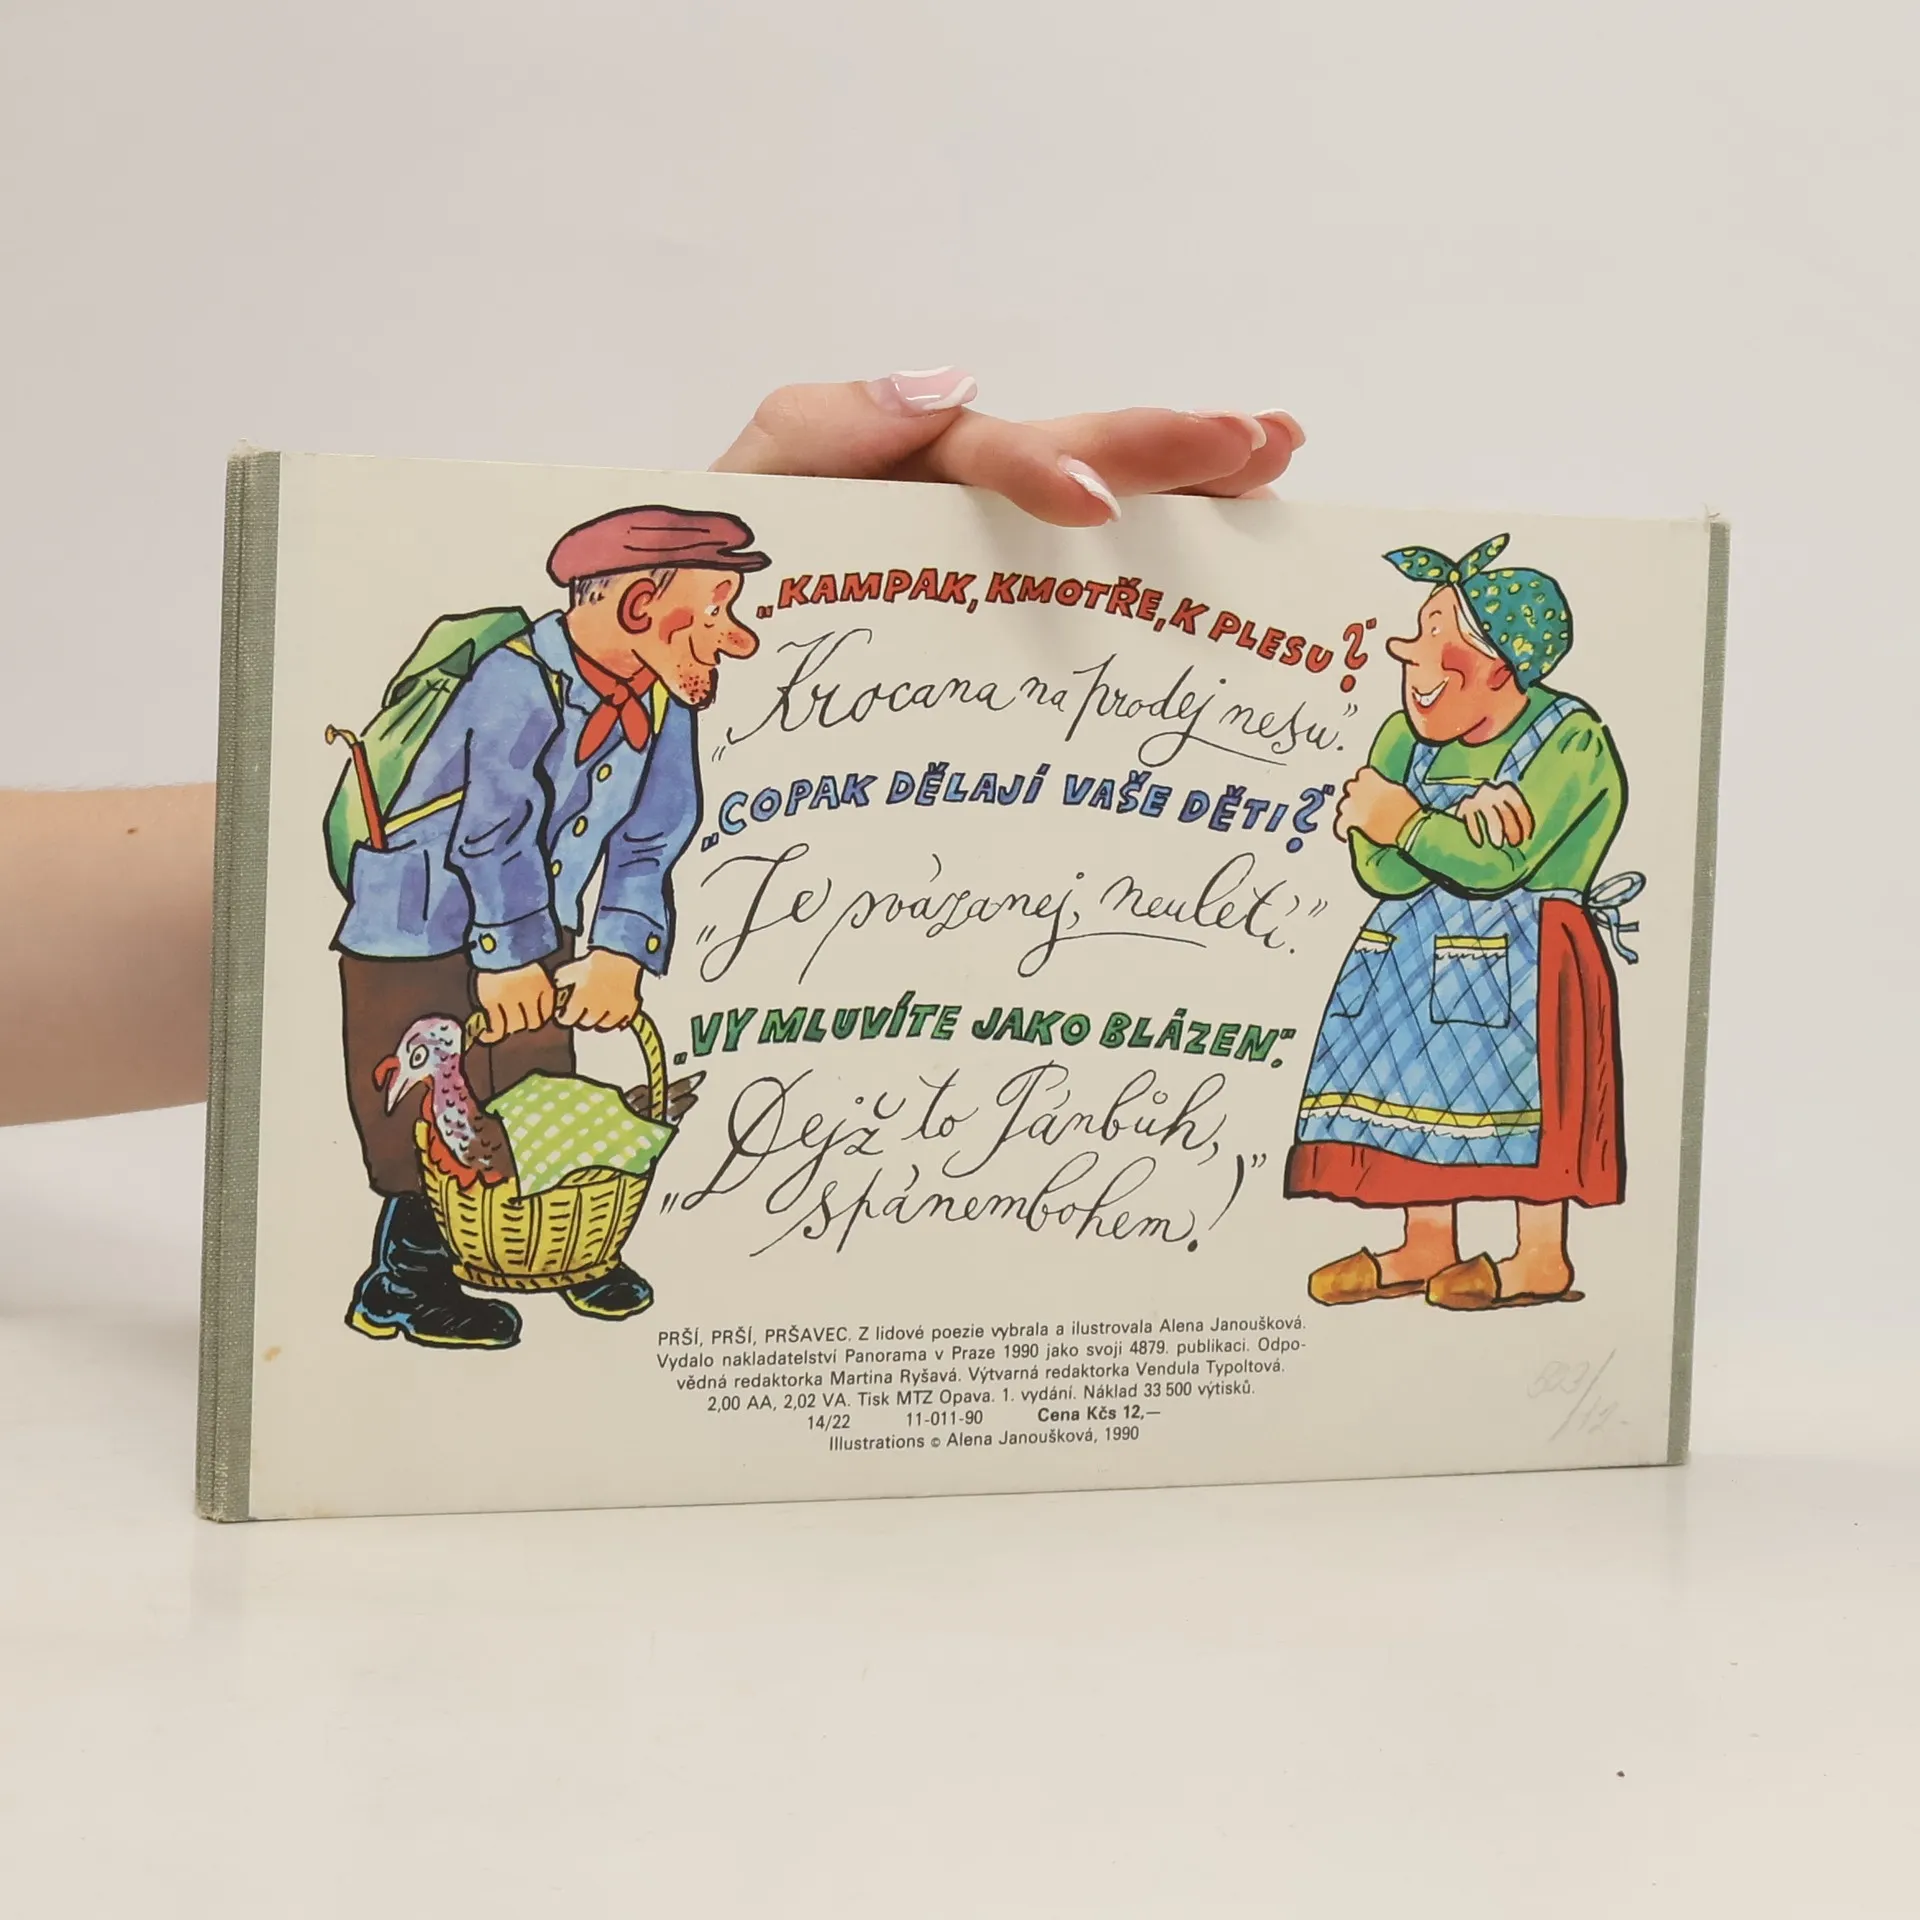 „KAMPAK, KMOTŘE, K PLESU?“
„Krocana na prodej nesu.”
„COPAK DĚLAJÍ VAŠE DĚTI?“
„Je svázanej, neuletí.”
„VY MLUVÍTE JAKO BLÁZEN.“
„Dejž to Pánbůh,
spánembohem!”
PRŠÍ, PRŠÍ, PRŠAVEC. Z lidové poezie vybrala a ilustrovala Alena Janoušková.
Vydalo nakladatelství Panorama v Praze 1990 jako svoji 4879. publikaci. Odpo-
vědná redaktorka Martina Ryšavá. Výtvarná redaktorka Vendula Typoltová.
2,00 AA, 2,02 VA. Tisk MTZ Opava. 1. vydání. Náklad 33 500 výtisků.
14/22 11-011-90 Cena Kčs 12,—
Illustrations © Alena Janoušková, 1990